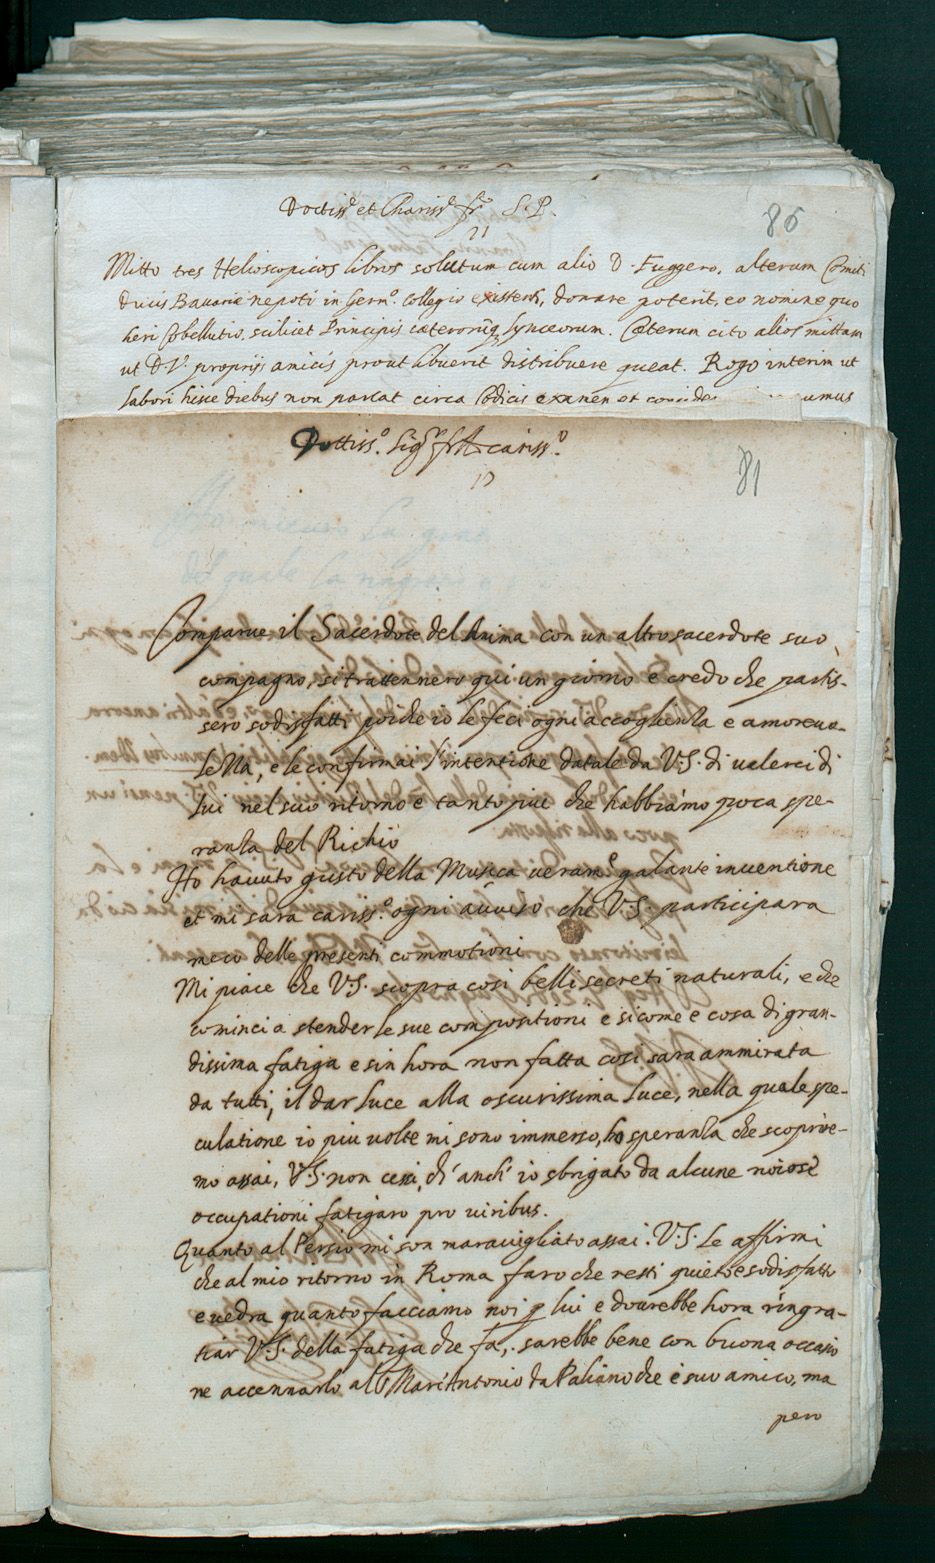 Doctiss.e et Chariss.e fr. S. P.
86
Mitto tres Helioscopicos libros solutum cum alio D. Fuggero, alterum Comiti
Ducis Bavariæ nepoti in Germ.o Collegio existenti, donare poterit, eo nomine quo
heri Cobellutio, scilicet Principis cæterorumq, Lynceorum. Cæterum cito alios mittam
ut D.V. proprijs amicis prout libuerit distribuere queat. Rogo interim ut
labori hisce diebus non parcat circa Codicis examen et
Dottiss.o Sig.r frat carissº.
81
Comparve il Sacerdote del Anima con un altro sacerdote suo
compagno, si trattennero qui un giorno e credo che partis-
sero sodisfatti poiche io le feci ogni accoglienza e amoreuo-
lezza, e le confirmai l'intentione datale da V.S. di valerci di
lui nel suo ritorno e tanto piu che habbiamo poca spe-
ranza del Richio
Ho havuto gusto della Musica veram.e galante inventione
et mi sara cariss.o ogni avviso che V.S. participara
meco delle presenti commotioni
Mi piace che V.S. scopra cosi belli secreti naturali, e che
cominci a stender le sue compositioni e si come e cosa di gran-
dissima fatiga e sin hora non fatta cosi sara ammirata
da tutti, il dar luce alla oscurissima luce, nella quale spe-
culatione io piu volte mi sono immerso, ho speranza che scoprire-
mo assai, V.S. non cessi, ch' anch' io sbrigato da alcune noiose
occupationi fatigaro pro viribus.
Quanto al Persio mi son maravigliato assai. V.S. le affirmi
che al mio ritorno in Roma faro che resti quieto e sodisfatto
e vedra quanto facciamo noi p lui e dovrebbe hora ringra-
tiar V.S. della fatiga che fa, sarebbe bene con buona occasio
ne accennarlo al Marc'Antonio da Paliano che è suo amico, ma
pero